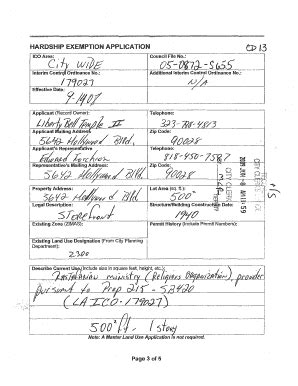 HARDSHIP EXEMPTION APPLICATION CD 13
ICO Area: Council File No.:
City WIDE 05-0872-S655
Interim Control Ordinance No.: Additional Interim Control Ordinance No.:
179027 N/A
Effective Date:
9-1407
Applicant (Record Owner): Telephone:
Liberty Bell Temple II 323-708-4813
Applicant Mailing Address Zip Code:
5642 Hollywood Blvd. 90028
Applicant's Representative Telephone:
Edward 818-450-7587
Representative's Mailing Address: Zip Code:
5642 Hollywood Blvd. 90028
CITY CLERK
Property Address: Lot Area (sq. ft.):
5642 Hollywood Blvd 500
Legal Description: Structure/Building Construction Date:
Storefront 1940
Existing Zone (ZIMAS): Permit History (include Permit Numbers):
Existing Land Use Designation (From City Planning
Department):
2300
Describe Current Use (include size in square feet, height, etc.):
Rastafarian ministry (Religious Organization) provider
pursuant to Prop 215 - SB420
(LA ICO - 179027)
500 ft. - 1 story
Note: A Master Land Use Application is not required.
Page 3 of 6